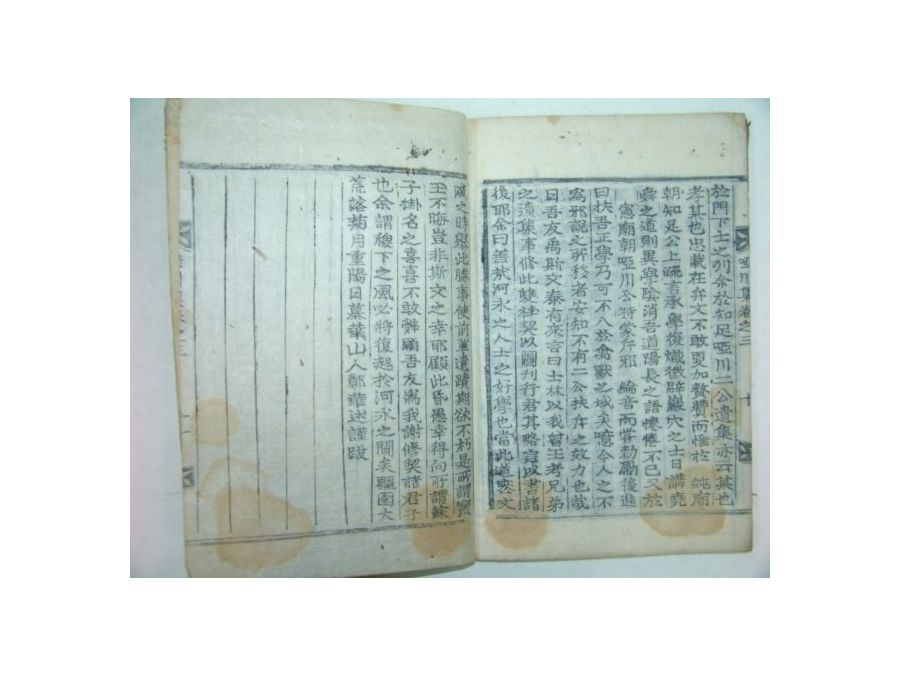 於門下士之列余於知足啞川二公遺集亦云某也
孝某也忠載在弁文不敢更加贅贊而惟於 純廟
朝知足公上疏言承學復熾徵辟巖穴之士日講堯
舜之道則異學陰消吾道陽長之語惓惓不已又於
憲廟朝啞川公特蒙斥邪 綸音而嘗勸勵後進
曰扶吾正學乃可不入於禽獸之域矣噫今人之不
為邪說之所移者安知不有二公扶斥之效力也哉
日吾友禹斯文泰有來言曰士林以我曾王考兄弟
之遺集事修此雙桂契以圖刊行君其略言以書諸
後耶余曰善哉河永之人士之好學也當此道喪文
滅之時舉此勝事使前輩遺蹟期欲不朽是所謂
玉不晦豈非斯文之幸耶顧此昏愚幸得向所謂蘇
子掛名之喜喜不敢辭願吾友為我謝修契諸君子
也余謂稷下之風必將復起於河永之間矣疆圉大
荒洛菊月重陽日葉山人鄭華述謹跋
啞川集卷之三 十